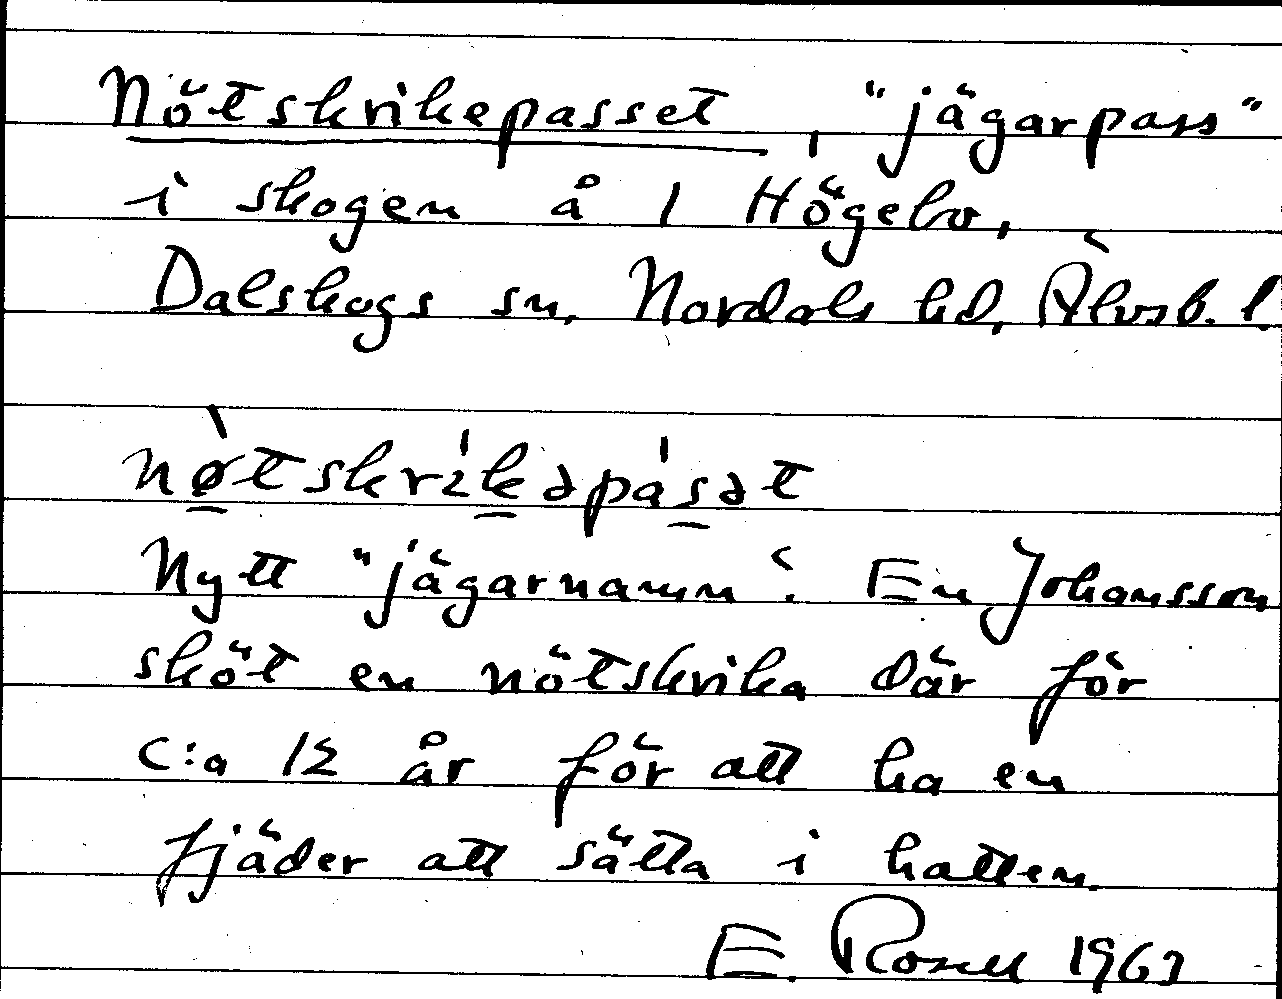 Nötskrikepasset, "jägarpass"
i skogen å 1 Högebo,
Dalskogs sn, Nordals hd, Älvsb. l.
nø̀tskrikəpasət
Nytt "jägarnamn". En Johansson
sköt en nötskrika där för
c:a 12 år för att ha en
fjäder att sätta i hatten.
E. Rosell 1967